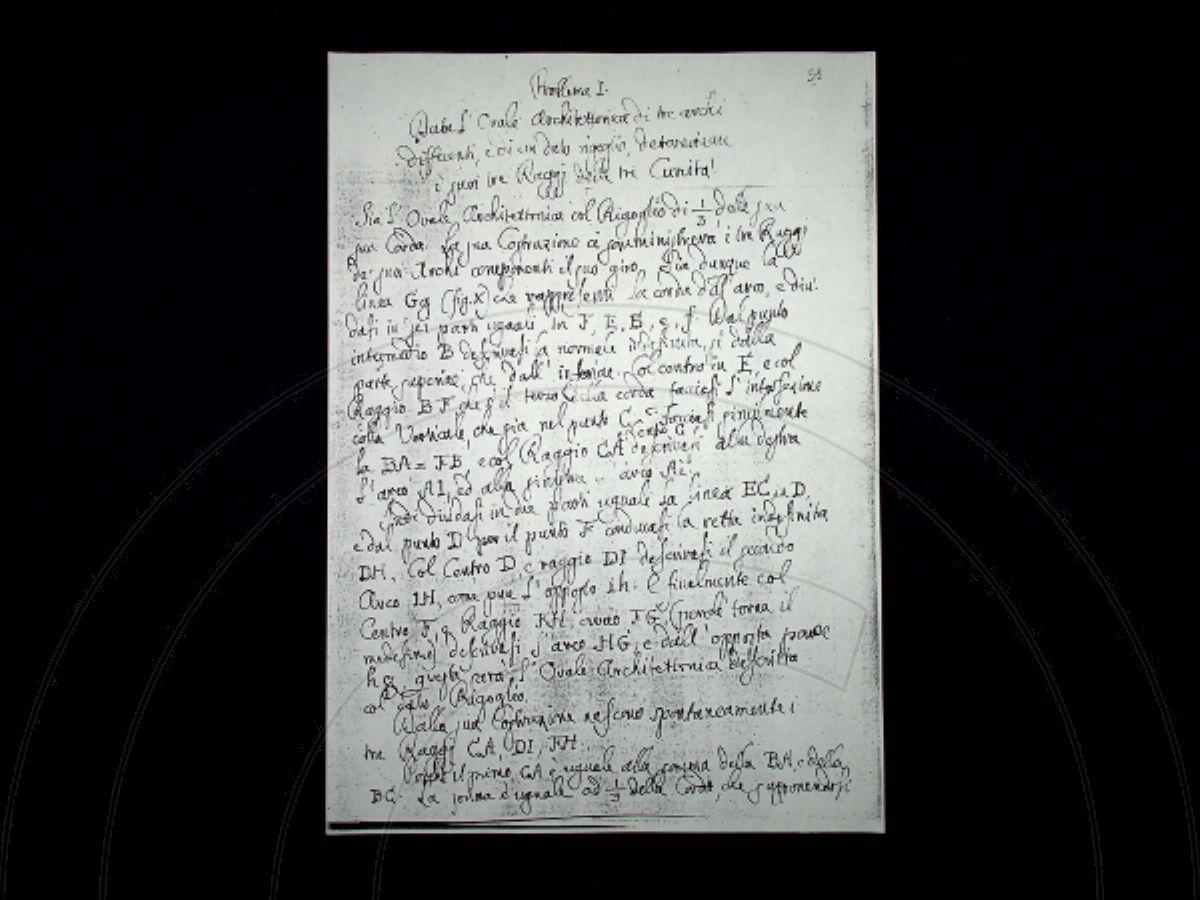 39
Problema I.
Data l'Ovale Architettonica di tre archi
differenti, e di un dato rigoglio, determinare
i suoi tre Raggi delle tre Curvità
Sia l'Ovale Architettonica col Rigoglio di 1/3 della sua
sua Corda. La sua Costruzione ci somministrerà i tre Raggi
de' suoi Archi componenti il suo giro. Sia dunque la
linea Gg (fig. X) che rappresenti la corda dell'arco, e divi-
dasi in sei parti uguali in F, E, B, e, f. Dal punto
intermedio B descrivasi la normale indefinita, sì dalla
parte superiore, che dall'inferiore. Col centro in E, e col
Raggio BF che è il terzo della corda facciasi l'intersezione
colla Verticale, che sia nel punto C. facciasi finalmente
la BA = FB e col centro C Raggio CA descrivasi alla destra
l'arco AI, ed alla sinistra l'arco Ai.
Indi dividasi in due parti uguale la linea EC in D,
e dal punto D per il punto F conducasi la retta indefinita
DH. Col Centro D e raggio DI descrivasi il secondo
Arco IH, come pure l'opposto ih: E finalmente col
Centro F, e Raggio FH, ovvero FG (perchè torna il
medesimo) descrivasi l'arco HG, e dall'opposta parte
hg questa sarà l'Ovale Architettonica descritta
col dato Rigoglio.
Dalla sua Costruzione nascono spontaneamente i
tre Raggi CA, DI, FH.
il primo CA è uguale alla somma della BA, e della
BC. La prima è uguale ad 1/3 della Corda, che supponendosi